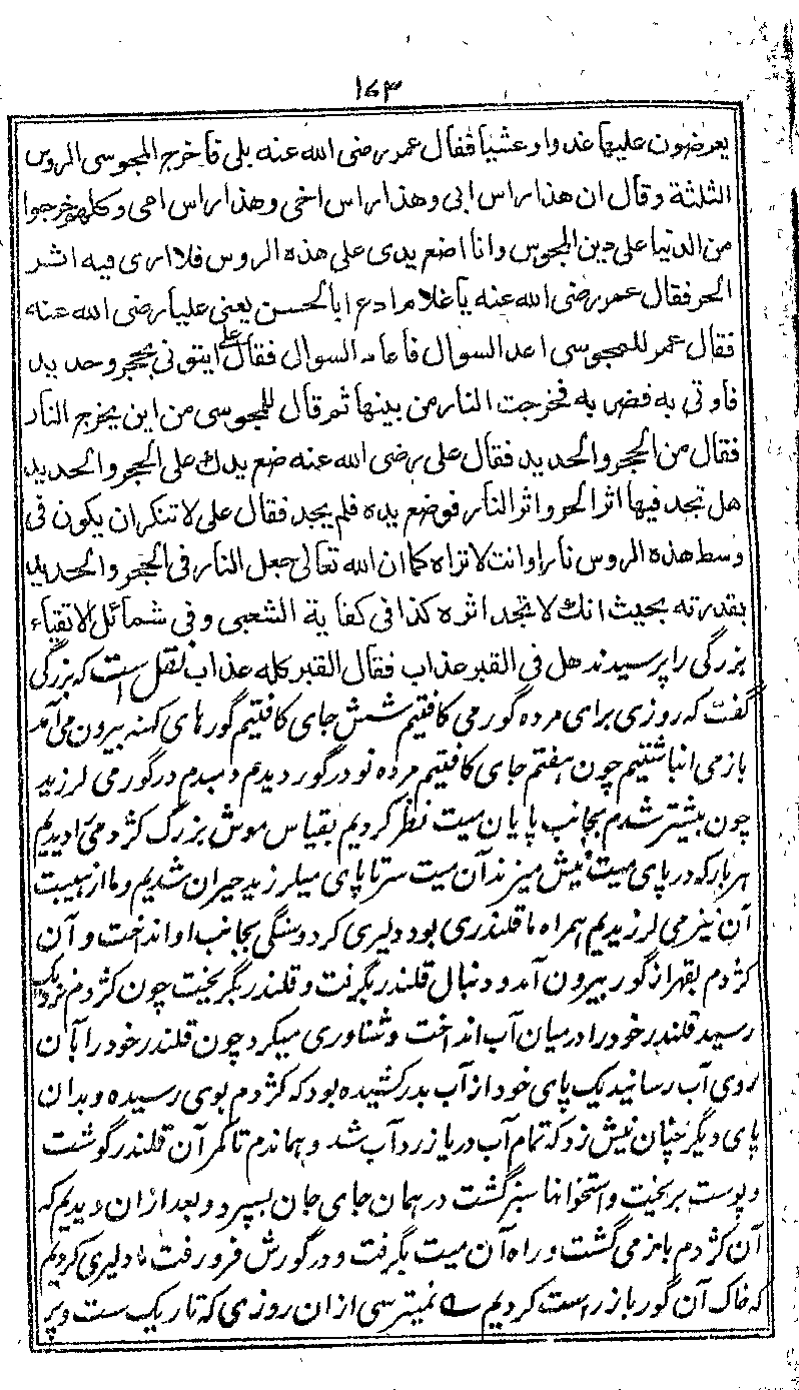 ۱۶۳
يعرضون عليها غدوا وعشيا فقال عمر رضى الله عنه بلى فاخرج المجوسى الروس
الثلثة وقال ان هذا راس ابى وهذا راس اخى وهذا راس امى وكلهم خرجوا
من الدنيا على دين المجوس وانا اضع يدى على هذه الروس فلا ارى فيه اثر
الحر فقال عمر رضى الله عنه يا غلام ادع ابا الحسن يعنى عليا رضى الله عنه
فقال عمر للمجوسى اعد السوال فاعاد السوال فقال على ايتونى بحجر وحديد
فاوتى به فضر به فخرجت النار من بينها ثم قال للمجوسى من اين يخرج النار
فقال من الحجر والحديد فقال على رضى الله عنه ضع يدك على الحجر والحديد
هل تجد فيها اثر الحر واثر النار فوضع يده فلم يجد فقال على لا تنكر ان يكون فى
وسط هذه الروس نارا وانت لا تراه كما ان الله تعالى جعل النار فى الحجر والحديد
بقدرته بحيث انك لا تجد اثره كذا فى كفاية الشعبى وفى شمائل الاتقياء
بزرگی را پرسیدند هل فى القبر عذاب فقال القبر كله عذاب نقل است که بزرگی
گفت که روزی برای مرده گور می کافتیم شش جای کافتیم گورهای کهنه بیرون می آمد
باز می انباشتیم چون هفتم جای کافتیم مرده نو در گور دیدم دمبدم در گور می لرزید
چون بیشتر شدم بجانب پایان میت نظر کردیم بقیاس موش بزرگ کژدمی را دیدیم
هر بار که در پای میت نیش میزند آن میت سر تا پای میلرزید حیران شدیم و ما از هیبت
آن نیز می لرزیدیم همراه ما قلندری بود دلیری کرد و سنگی بجانب او انداخت و آن
کژدم بقهر از گور بیرون آمد و دنبال قلندر بگرفت و قلندر بگریخت چون کژدم نزدیک
رسید قلندر خود را درمیان آب انداخت و شناوری میکرد چون قلندر خود را بآن
روی آب رسانید یک پای خود از آب بدر کشیده بود که کژدم بوی رسیده و بدان
پای دیگر چنان نیش زد که تمام آب دریا زرد آب شد و هماندم تا کمر آن قلندر گوشت
و پوست بریخت و استخوانها سبز گشت در همان جای جان بسپرد و بعد ازان دیدیم که
آن کژدم باز می گشت و راه آن میت بگرفت و در گورش فرو رفت ما دلیری کردیم
که خاک آن گور باز راست کردیم نمیترسی ازان روزی که تاریک ست و پر